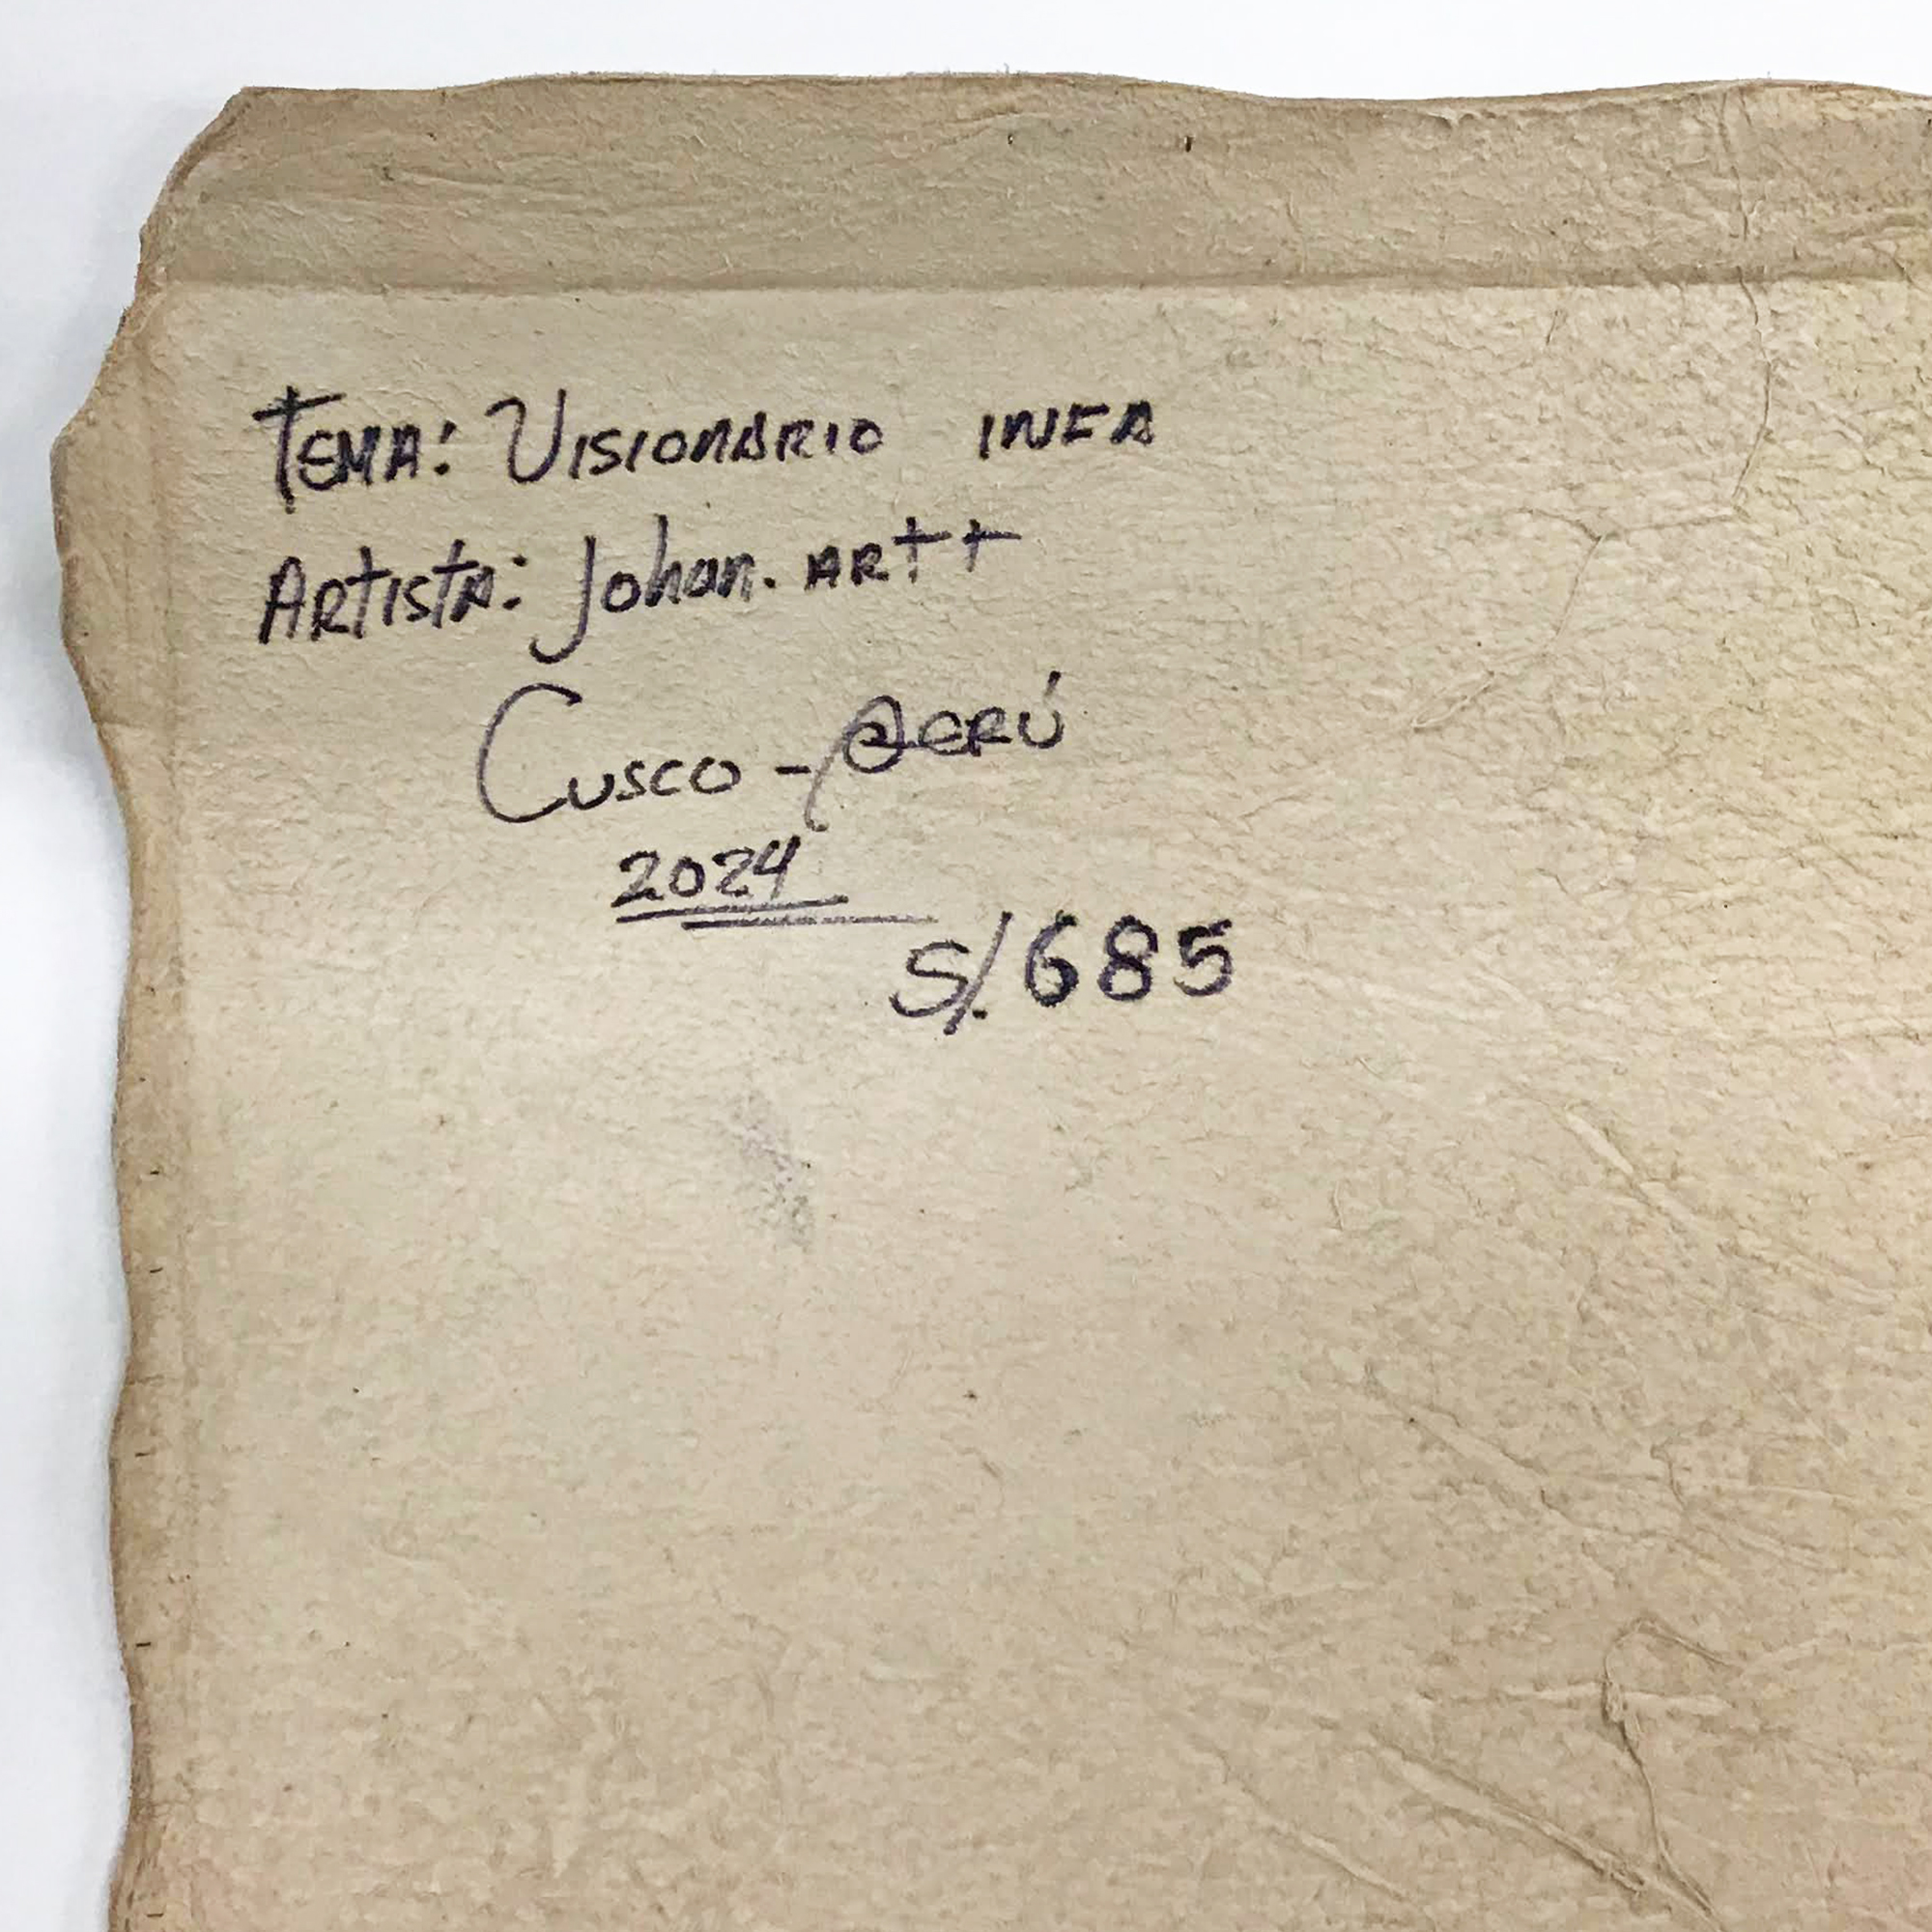 TEMA: VISIONARIO INKA
ARTISTA: Johan. ARTT
CUSCO - PERÚ
2024
S/. 685